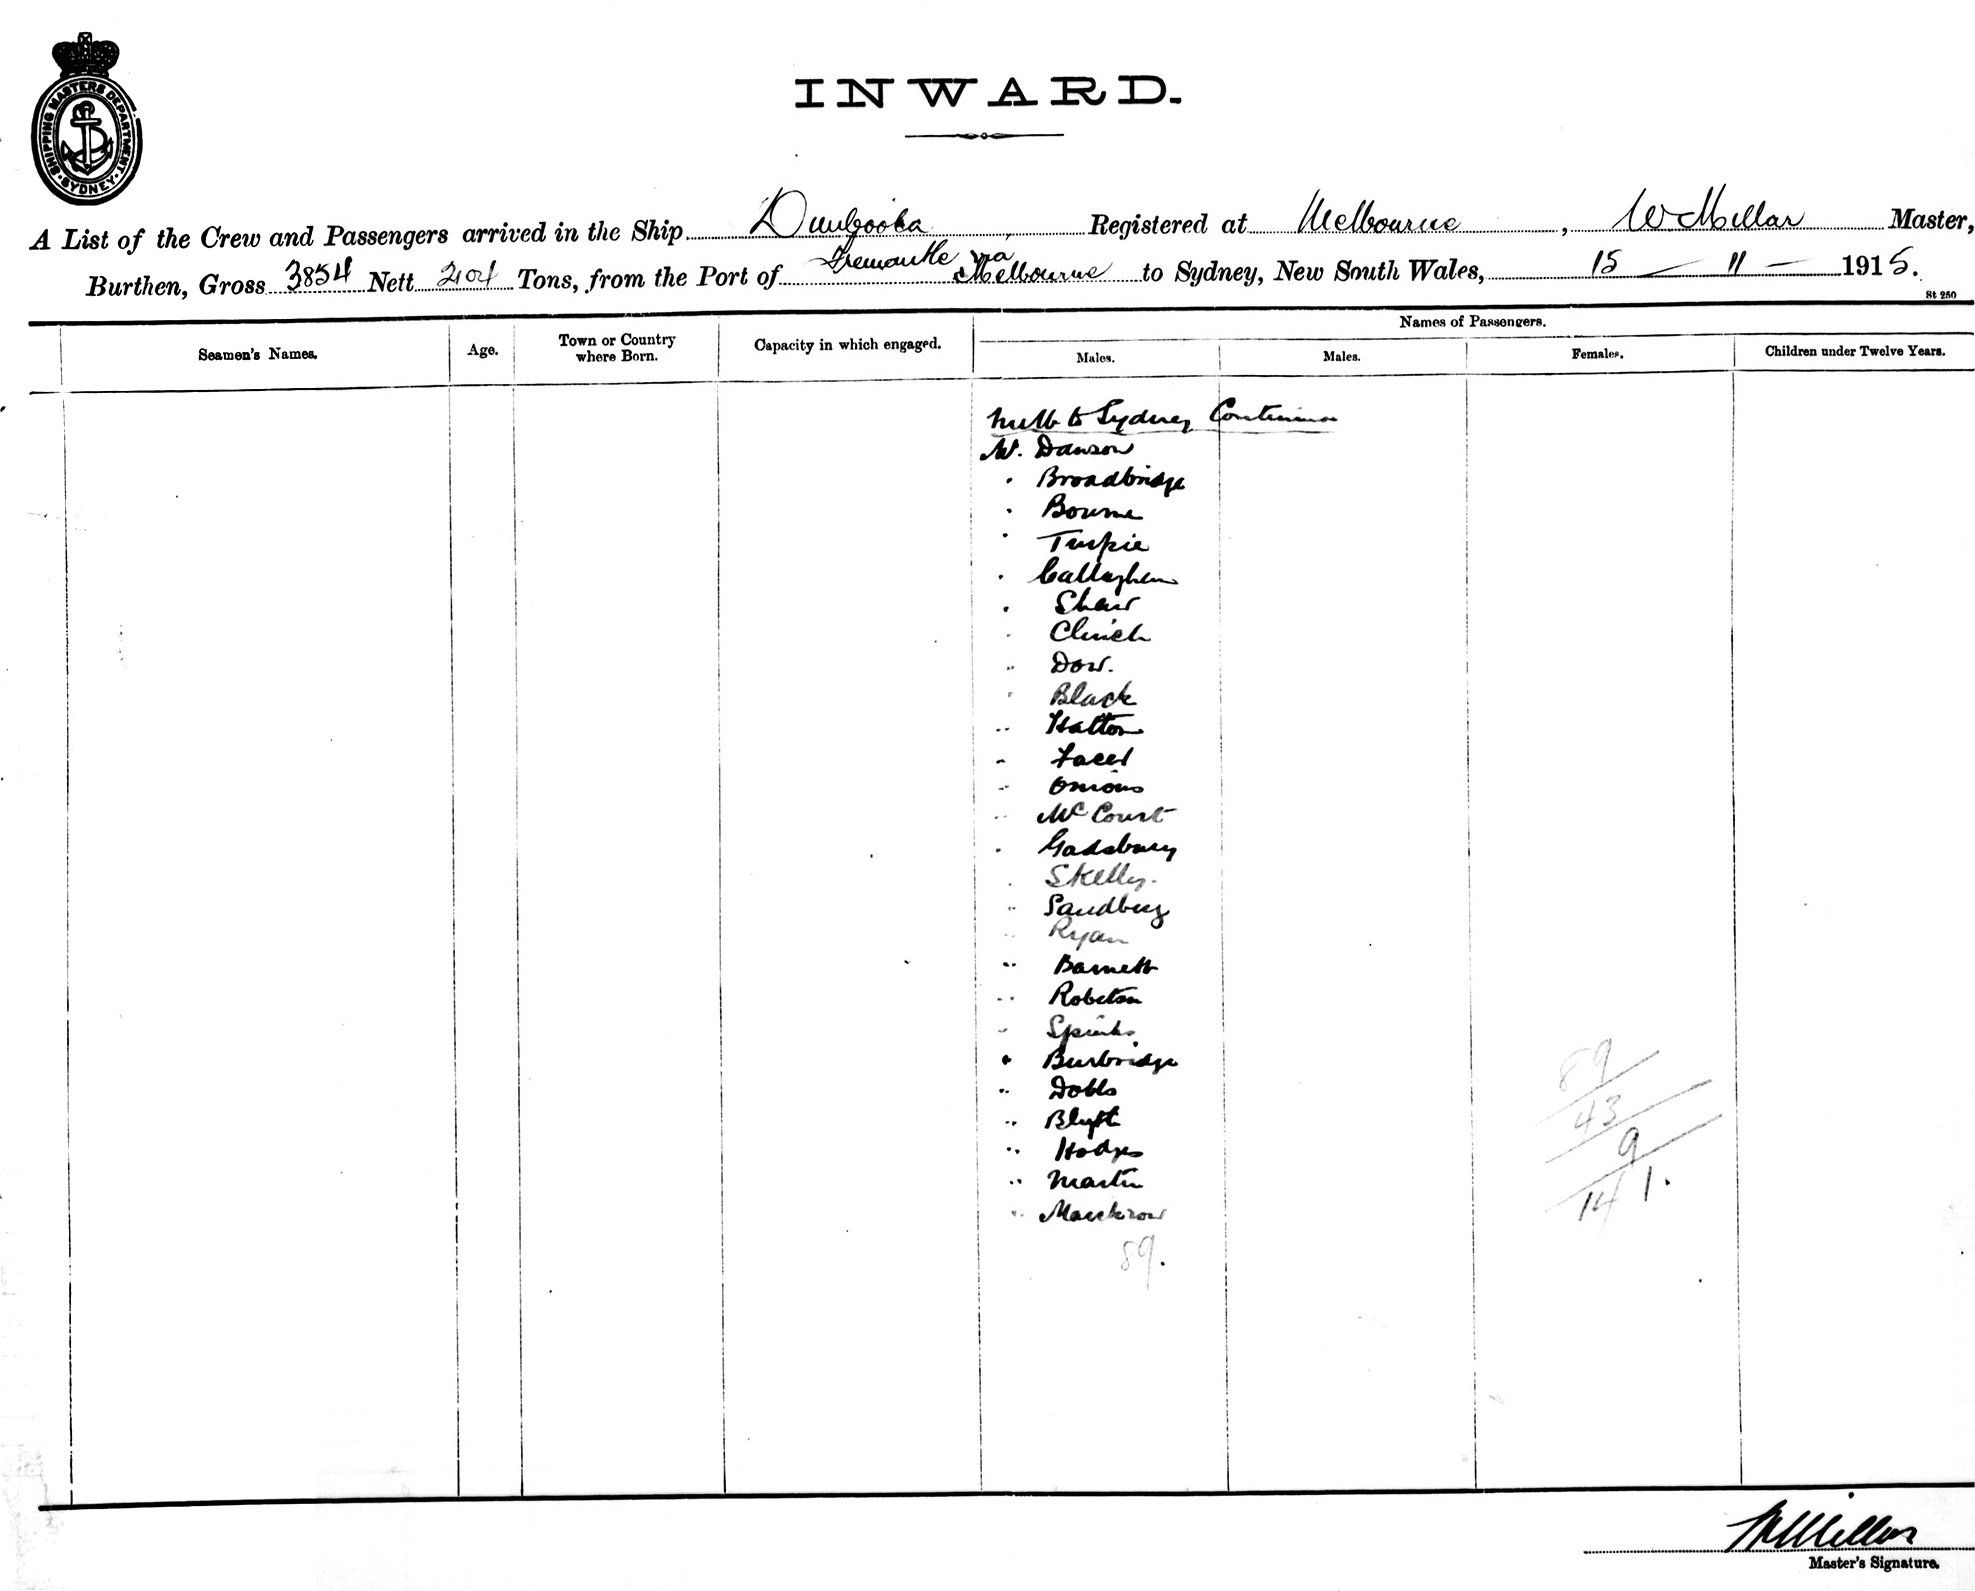 SHIPPING MASTERS DEPARTMENT
SYDNEY
INWARD.
A List of the Crew and Passengers arrived in the Ship Dimboola, Registered at Melbourne, W Millar Master,
Burthen, Gross 3854 Nett Tons, from the Port of Fremantle via Melbourne to Sydney, New South Wales, 15 - 11 - 1915.
St 250
Seamen's Names. Age. Town or Country where Born. Capacity in which engaged. Names of Passengers.
Males. Males. Females. Children under Twelve Years.
Melb to Sydney
Mr. Dawson
" Broadbridge
" Bourne
" Turpie
" Callaghan
" Shaw
" Clinch
" Dow.
" Black
" Hatton
" Facer
" Onions
" McCourt
" Gadsbury
" Skelly.
" Sandberg
" Ryan
" Barnett
" Robetson
" Spinks
" Burbridge
" Dobbs
" Blyth
" Hodges
" Martin
"
89.
89
43
9
141.
W Millar
Master's Signature.